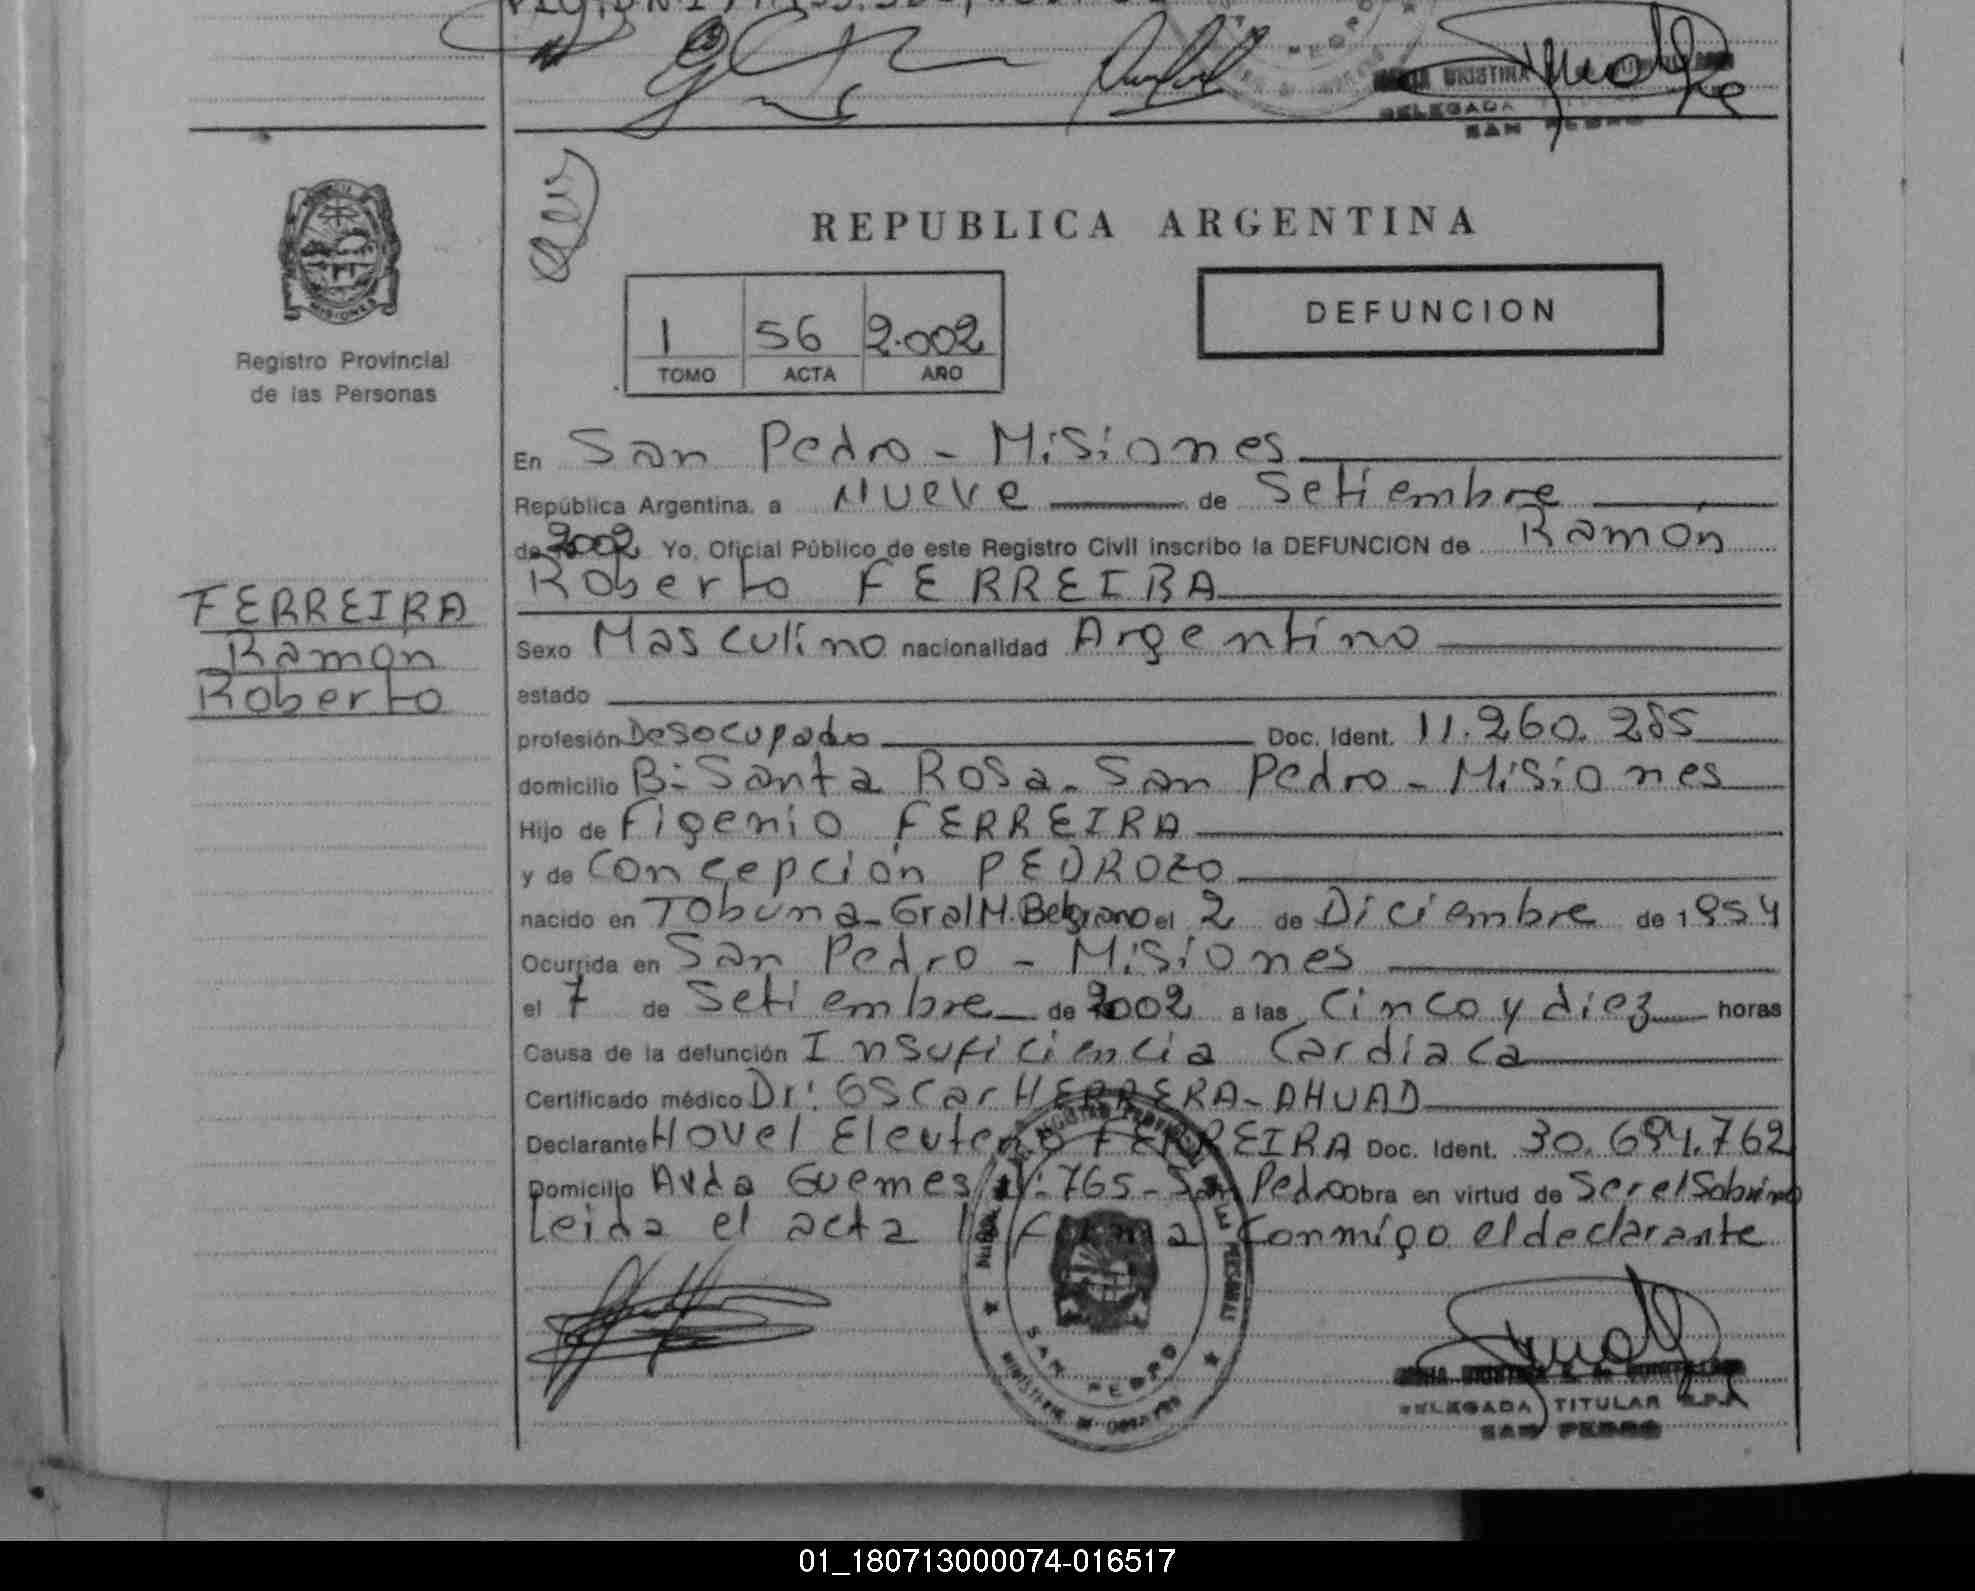 DELEGADA TITULAR
SAN PEDRO
REPUBLICA ARGENTINA
DEFUNCION
1 56 2.002
TOMO ACTA AÑO
MISIONES
Registro Provincial
de las Personas
En San Pedro - Misiones
República Argentina, a Nueve de Setiembre
de 2002 Yo, Oficial Público de este Registro Civil inscribo la DEFUNCION de Ramón
Roberto FERREIRA
FERREIRA
Ramón
Roberto
Sexo Masculino nacionalidad Argentino
estado
profesión Desocupado Doc. Ident. 11.260.285
domicilio B: Santa Rosa - San Pedro - Misiones
Hijo de Figenio FERREIRA
y de Concepción PEDROZO
nacido en Tobuna - Gral M. Belgrano el 2 de Diciembre de 1954
Ocurrida en San Pedro - Misiones
el 7 de Setiembre de 2002 a las Cinco y diez horas
Causa de la defunción Insuficiencia Cardiaca
Certificado médico Dr: Oscar HERRERA - AHUAD
Declarante Hovel Eleuterio FERREIRA Doc. Ident. 30.694.762
Domicilio Avda Guemes N: 765 - San Pedro obra en virtud de Ser el Sobrino
Leida el acta la firma Conmigo el declarante
SAN PEDRO
DELEGADA TITULAR R.P.P.
SAN PEDRO
01_180713000074-016517